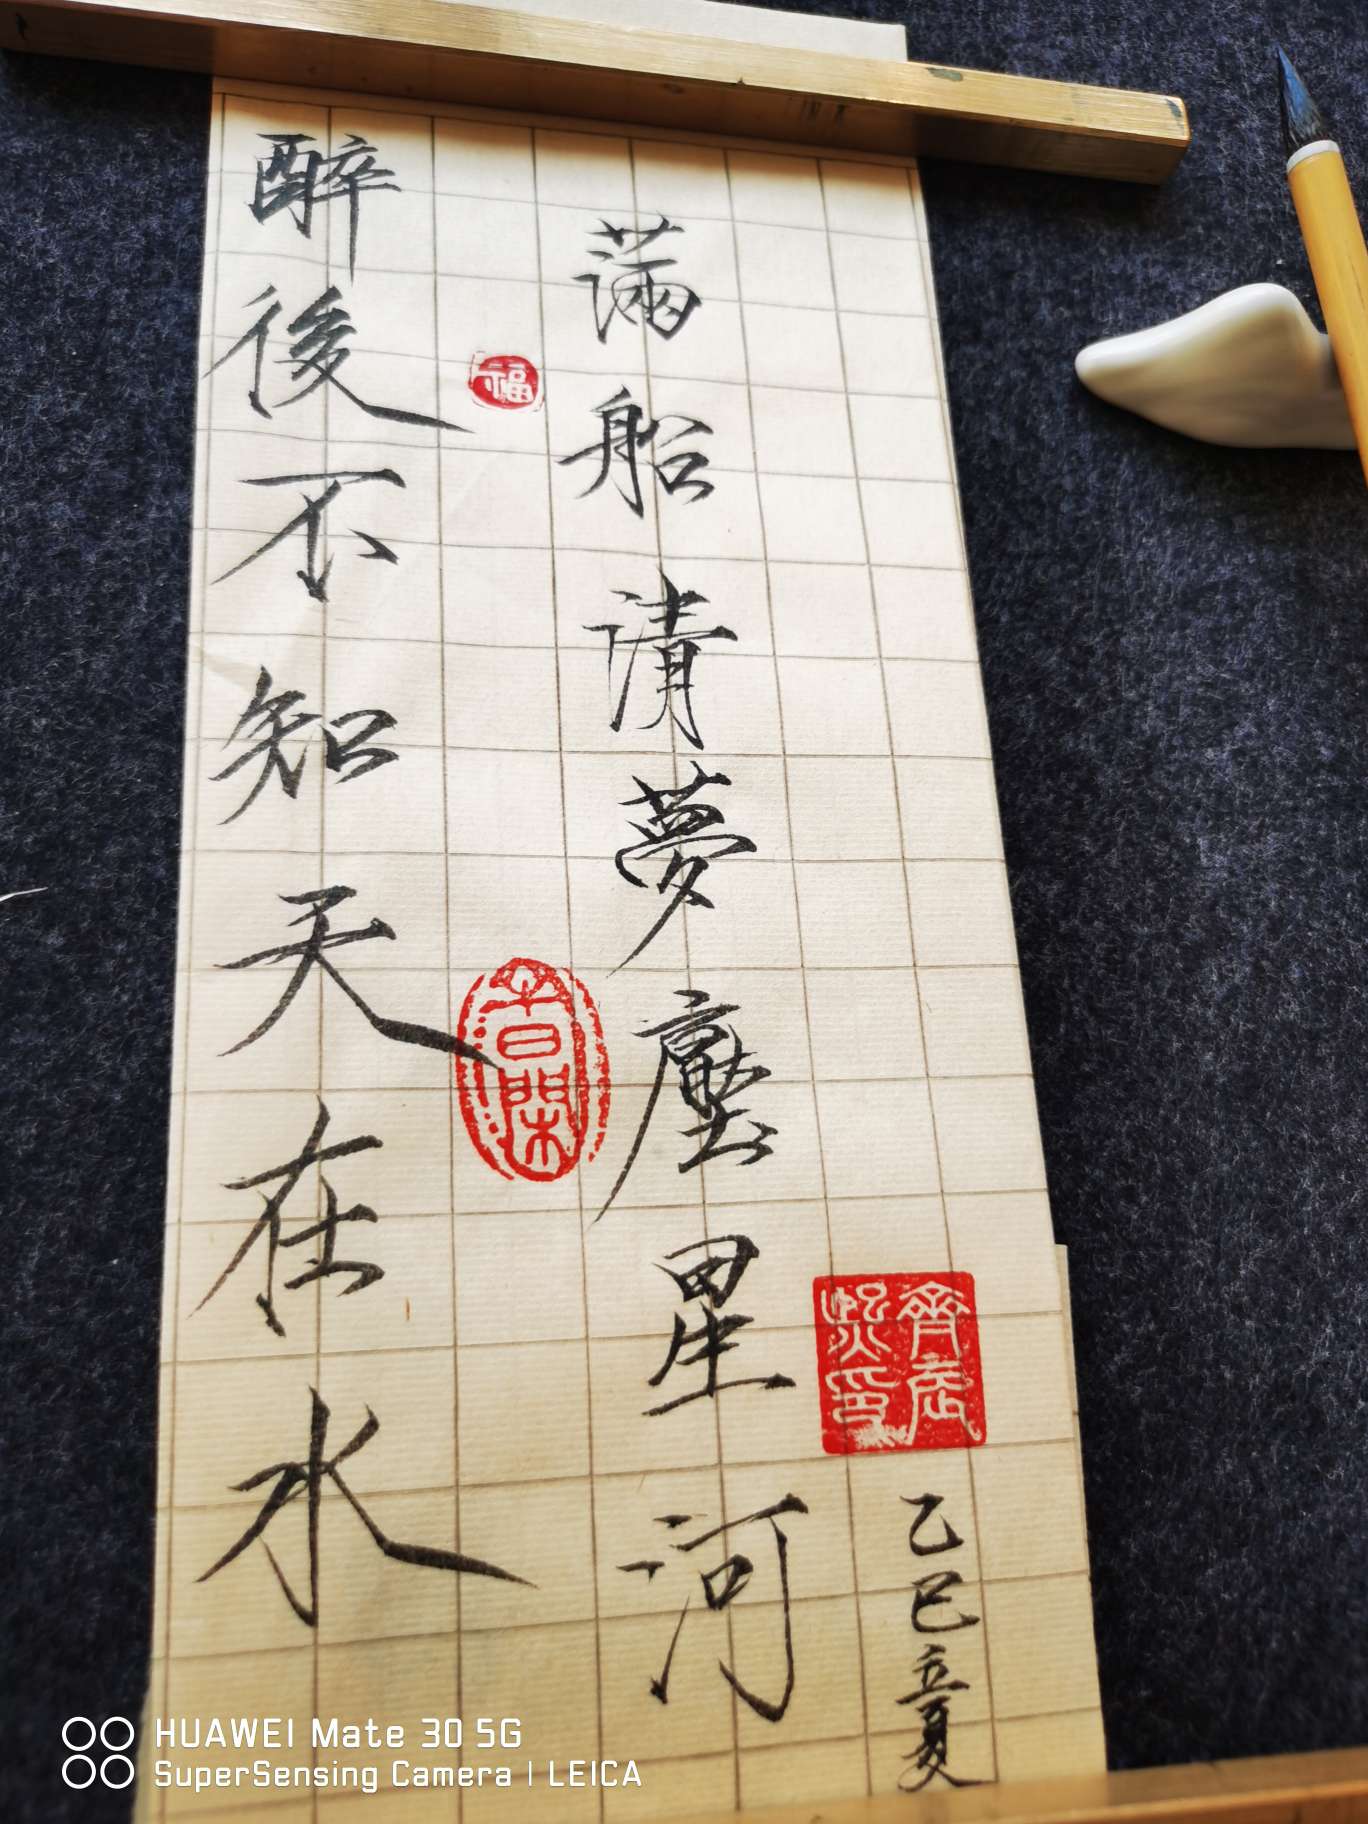 醉後不知天在水
福
滿船清夢壓星河
乙巳立夏
HUAWEI Mate 30 5G
SuperSensing Camera | LEICA